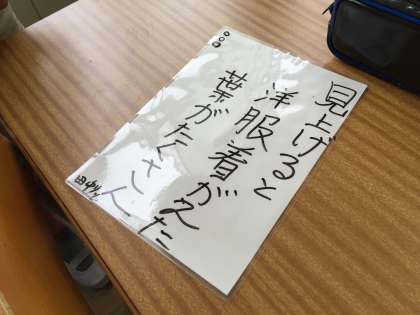 見上げると
洋服着がえた
葉がたくさん